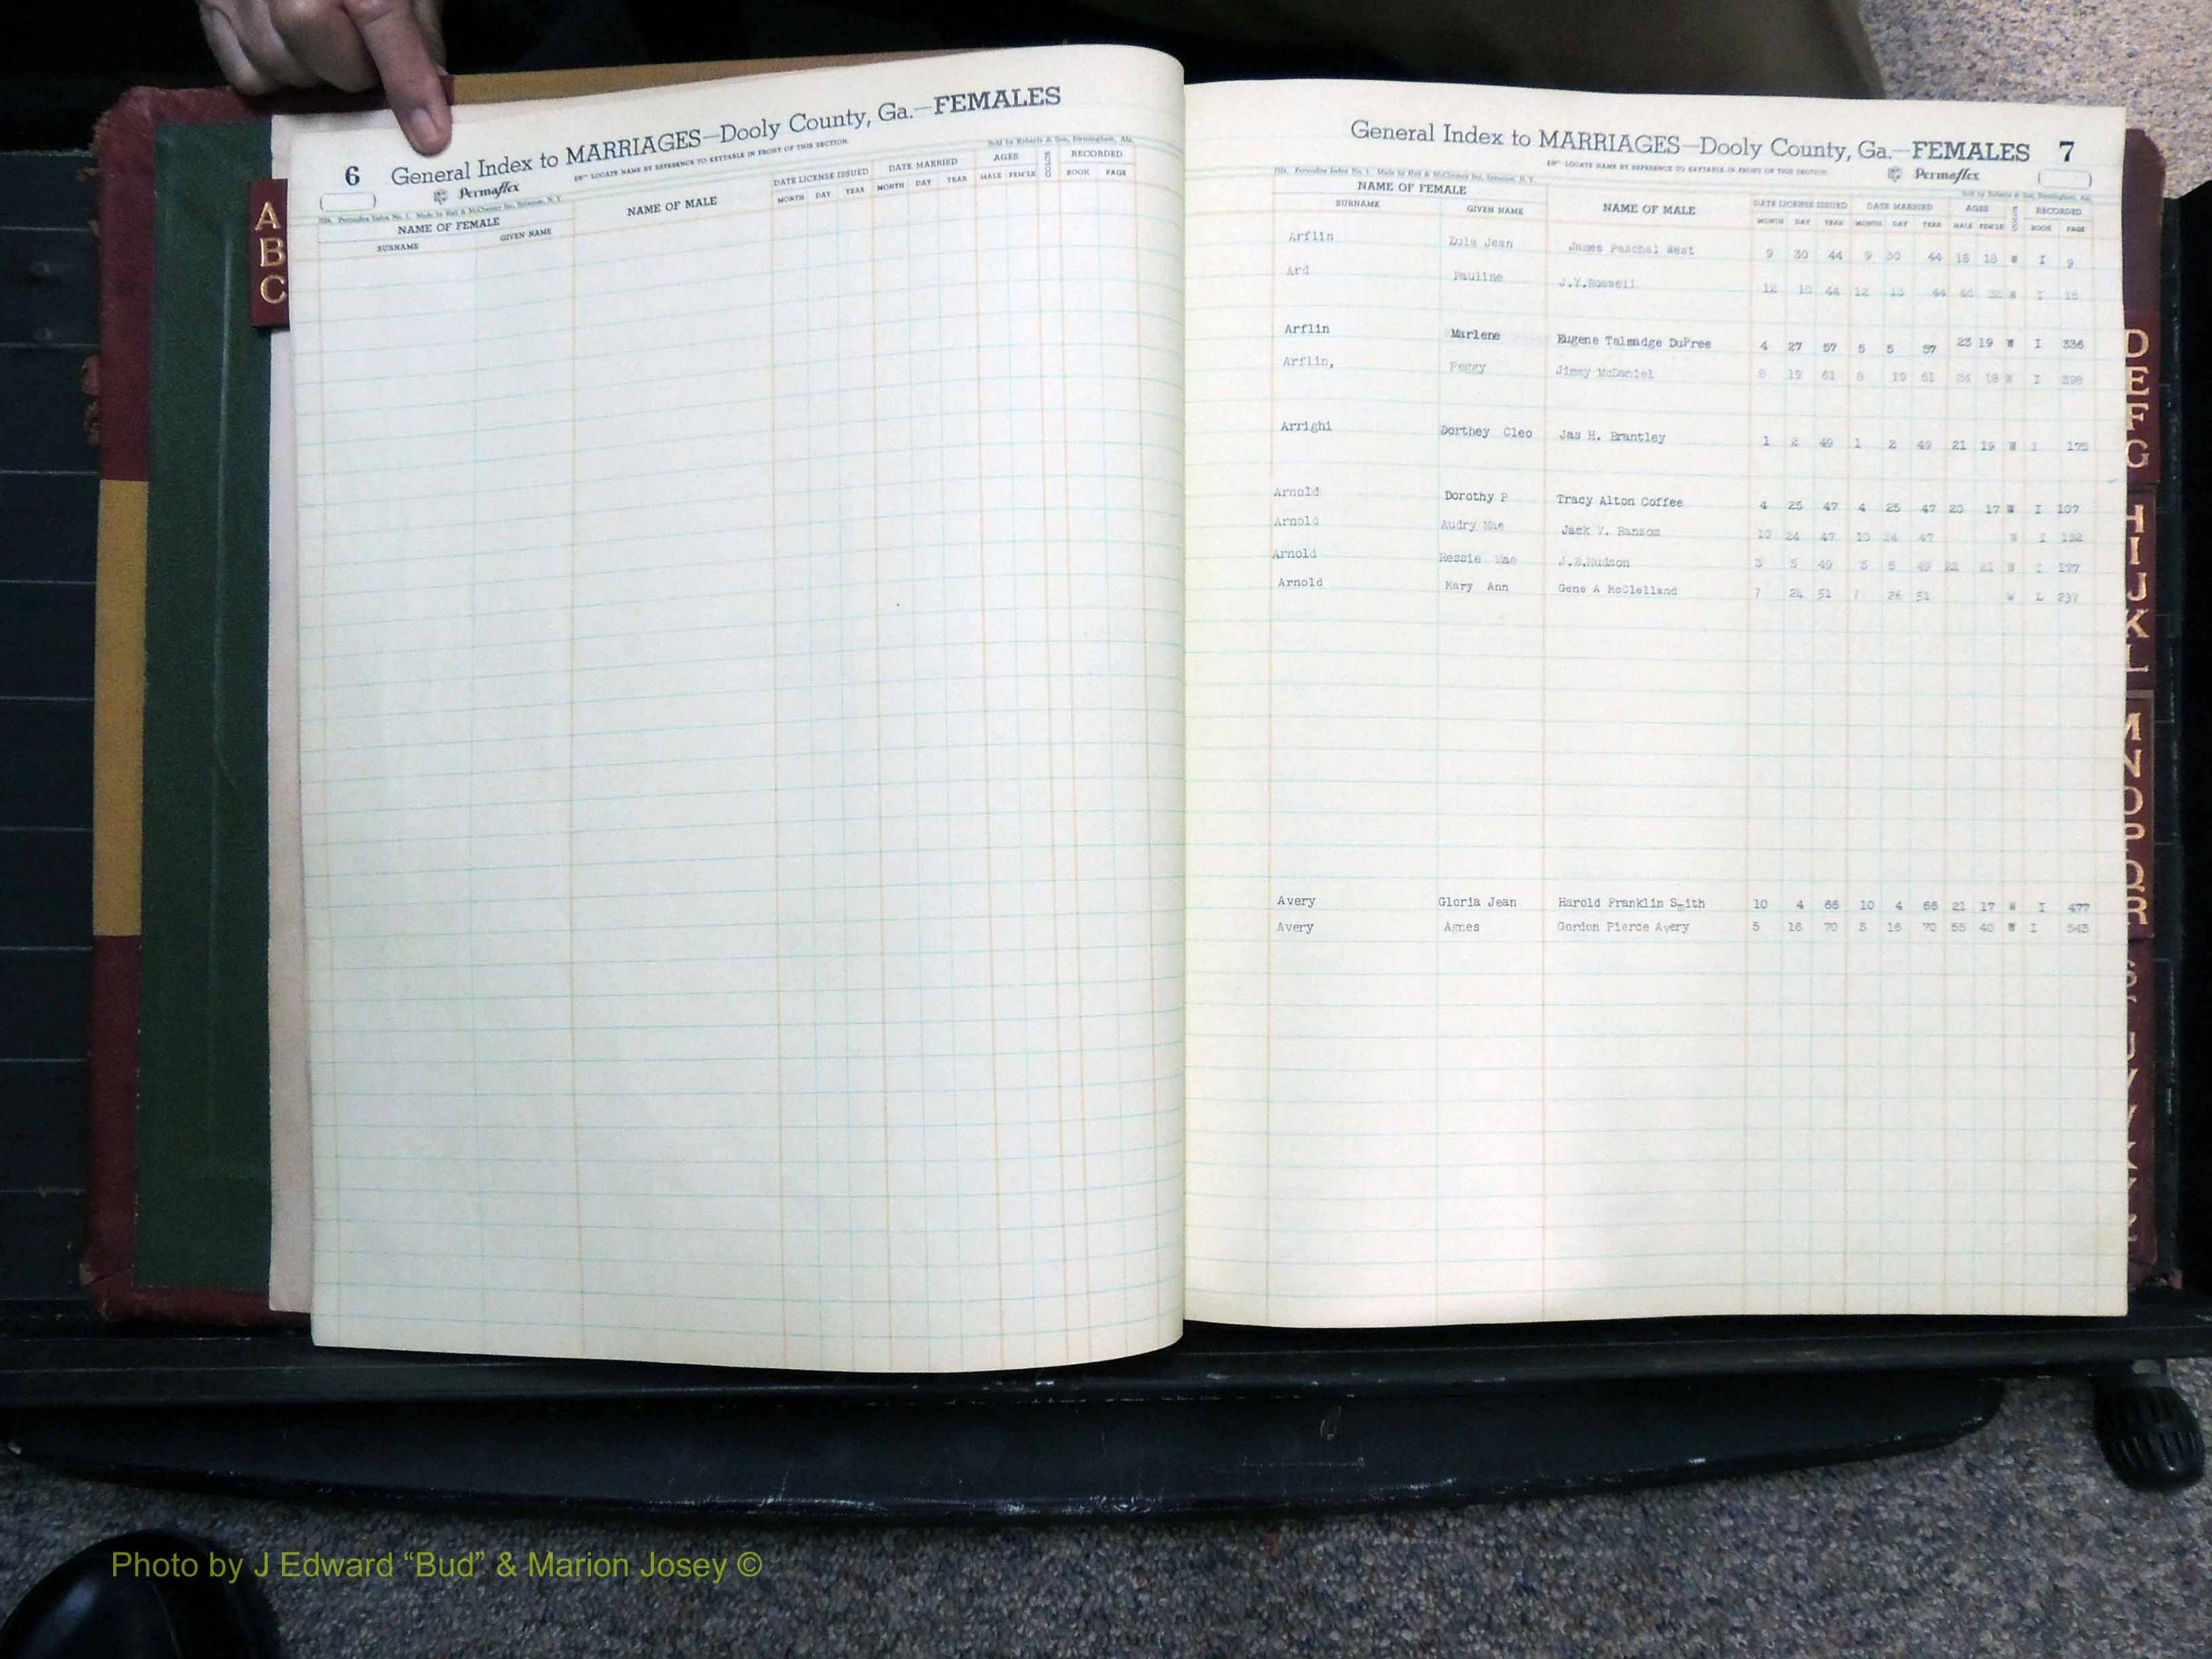 6 General Index to MARRIAGES—Dooly County, Ga.—FEMALES
Permaflex
LOCATE NAME BY REFERENCE TO KEYTABLE IN FRONT OF THIS SECTION.
Sold by Roberts & Son, Birmingham, Ala.
NAME OF FEMALE NAME OF MALE DATE LICENSE ISSUED DATE MARRIED AGES COLOR RECORDED
SURNAME GIVEN NAME MONTH DAY YEAR MONTH DAY YEAR MALE FEM'LE BOOK PAGE
A
B
C
General Index to MARRIAGES—Dooly County, Ga.—FEMALES 7
LOCATE NAME BY REFERENCE TO KEYTABLE IN FRONT OF THIS SECTION.
Permaflex
Sold by Roberts & Son, Birmingham, Ala.
NAME OF FEMALE NAME OF MALE DATE LICENSE ISSUED DATE MARRIED AGES COLOR RECORDED
SURNAME GIVEN NAME MONTH DAY YEAR MONTH DAY YEAR MALE FEM'LE BOOK PAGE
Arflin Zula Jean James Paschal West 9 30 44 9 30 44 18 18 W I 9
Ard Pauline 12 44 12 44 W I 15
Arflin Marlene Eugene Talmadge DuPree 4 27 57 5 5 57 23 19 W I 336
Arflin, Peggy Jimmy McDaniel 8 19 61 8 19 61 24 18 W I 398
Arrighi Dorthey Cleo Jas H. Brantley 1 2 49 1 2 49 21 19 W I 175
Arnold Dorothy P Tracy Alton Coffee 4 25 47 4 25 47 23 17 W I 107
Arnold Audry Mae Jack V. Ransom 10 24 47 10 24 47 W I 132
Arnold Ressie Mae J.S.Hudson 3 5 49 3 5 49 22 21 W I 177
Arnold Mary Ann Gene A McClelland 7 24 51 7 26 51 W L 237
Avery Gloria Jean Harold Franklin Smith 10 4 66 10 4 66 21 17 W I 477
Avery Agnes Gordon Pierce Avery 5 16 70 5 16 70 55 40 W I 543
D
E
F
G
H
I
J
K
L
M
N
O
P
Q
R
S
Photo by J Edward “Bud” & Marion Josey ©